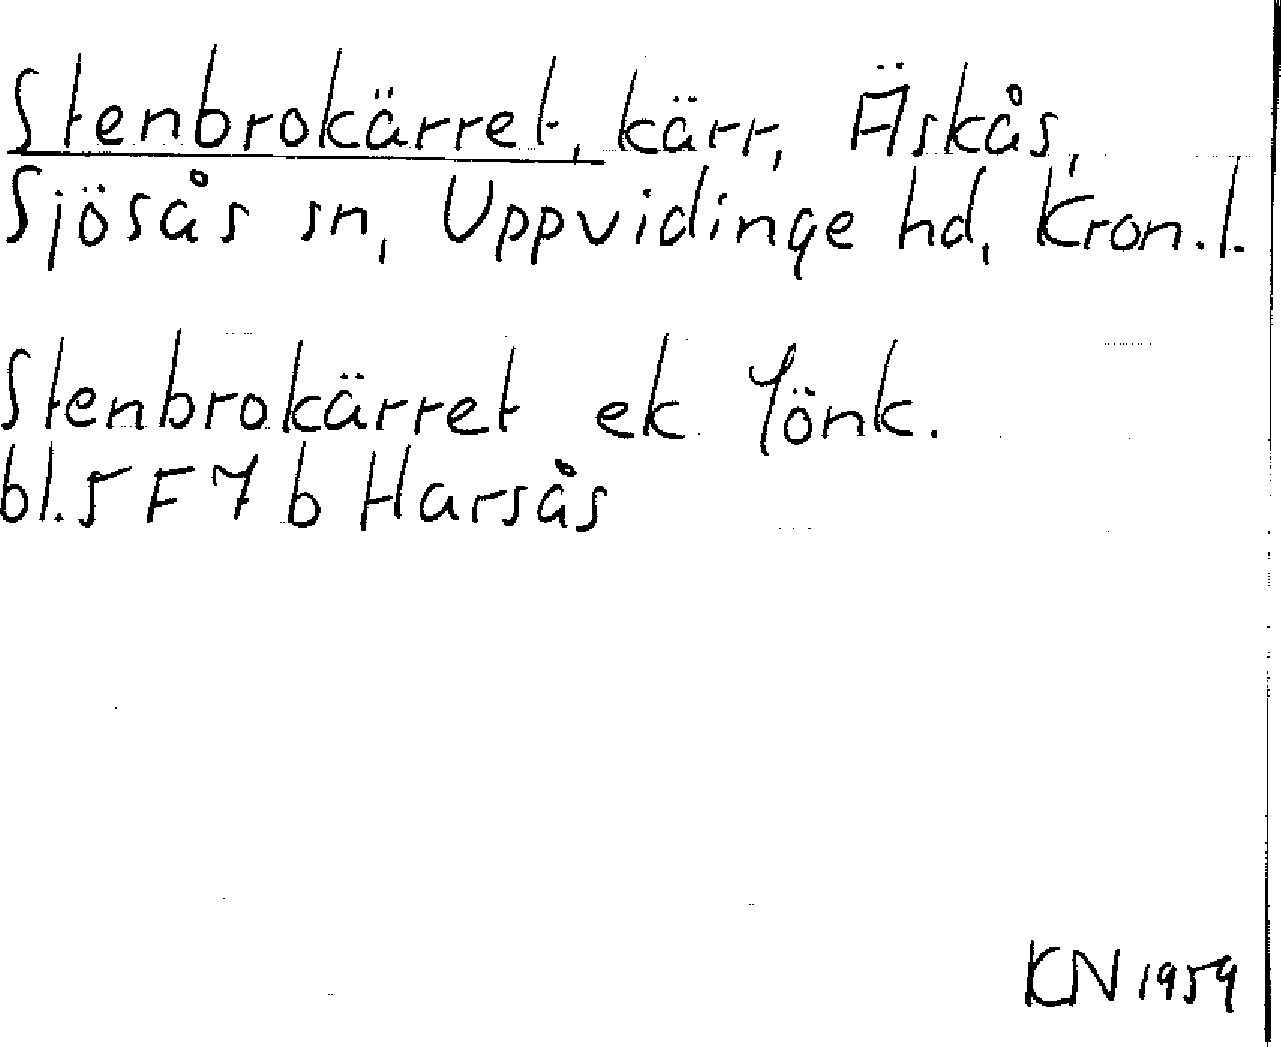 Stenbrokärret, kärr, Äskås,
Sjösås sn, Uppvidinge hd, Kron.l.
Stenbrokärret ek Jönk.
bl. 5 F 7 b Harsås
KN 1959